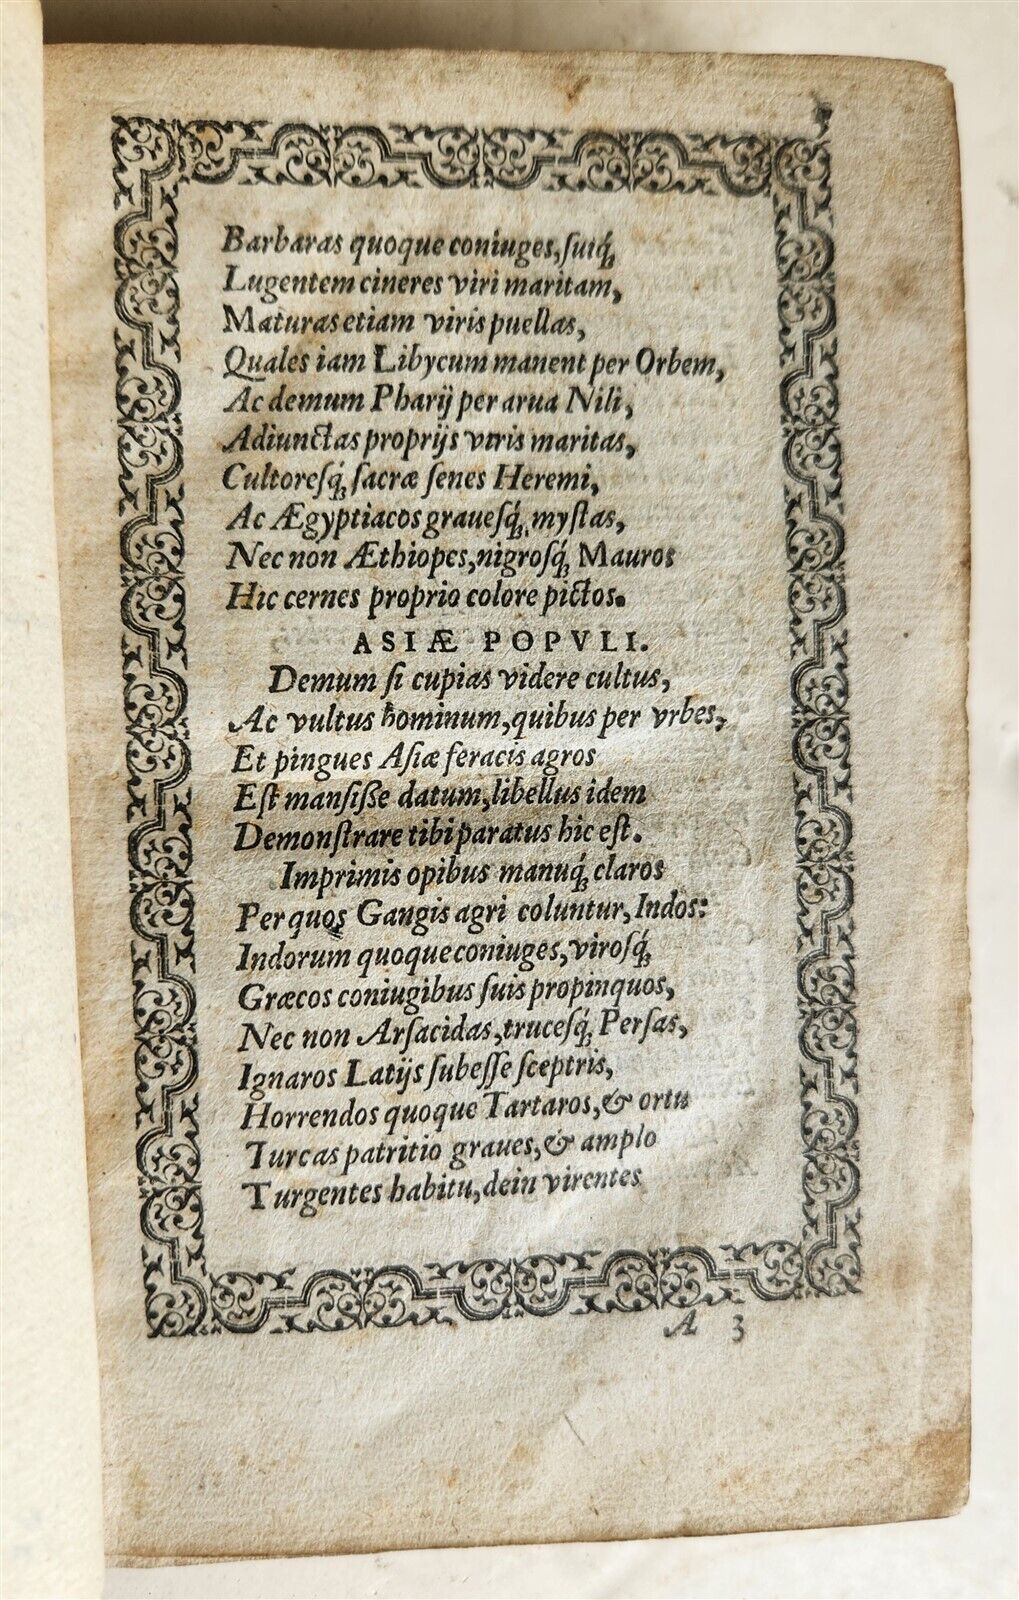 Barbaras quoque coniuges, ſuiq́;
Lugentem cineres viri maritam,
Maturas etiam viris puellas,
Quales iam Libycum manent per Orbem,
Ac demum Pharij per arua Nili,
Adiunctas proprijs viris maritas,
Cultoreſq́; sacræ ſenes Heremi,
Ac Ægyptiacos graueſq́; myſtas,
Nec non Æthiopes, nigroſq́; Mauros
Hic cernes proprio colore pictos.
ASIÆ POPVLI.
Demum ſi cupias videre cultus,
Ac vultus hominum, quibus per vrbes,
Et pingues Aſiæ feracis agros
Eſt manſiſſe datum, libellus idem
Demonſtrare tibi paratus hic eſt.
Imprimis opibus manuq́; claros
Per quos Gangis agri coluntur, Indos:
Indorum quoque coniuges, viroſq́;
Græcos coniugibus ſuis propinquos,
Nec non Arſacidas, truceſq́; Perſas,
Ignaros Latijs ſubeſſe ſceptris,
Horrendos quoque Tartaros, & ortu
Turcas patritio graues, & amplo
Turgentes habitu, dein virentes
A 3